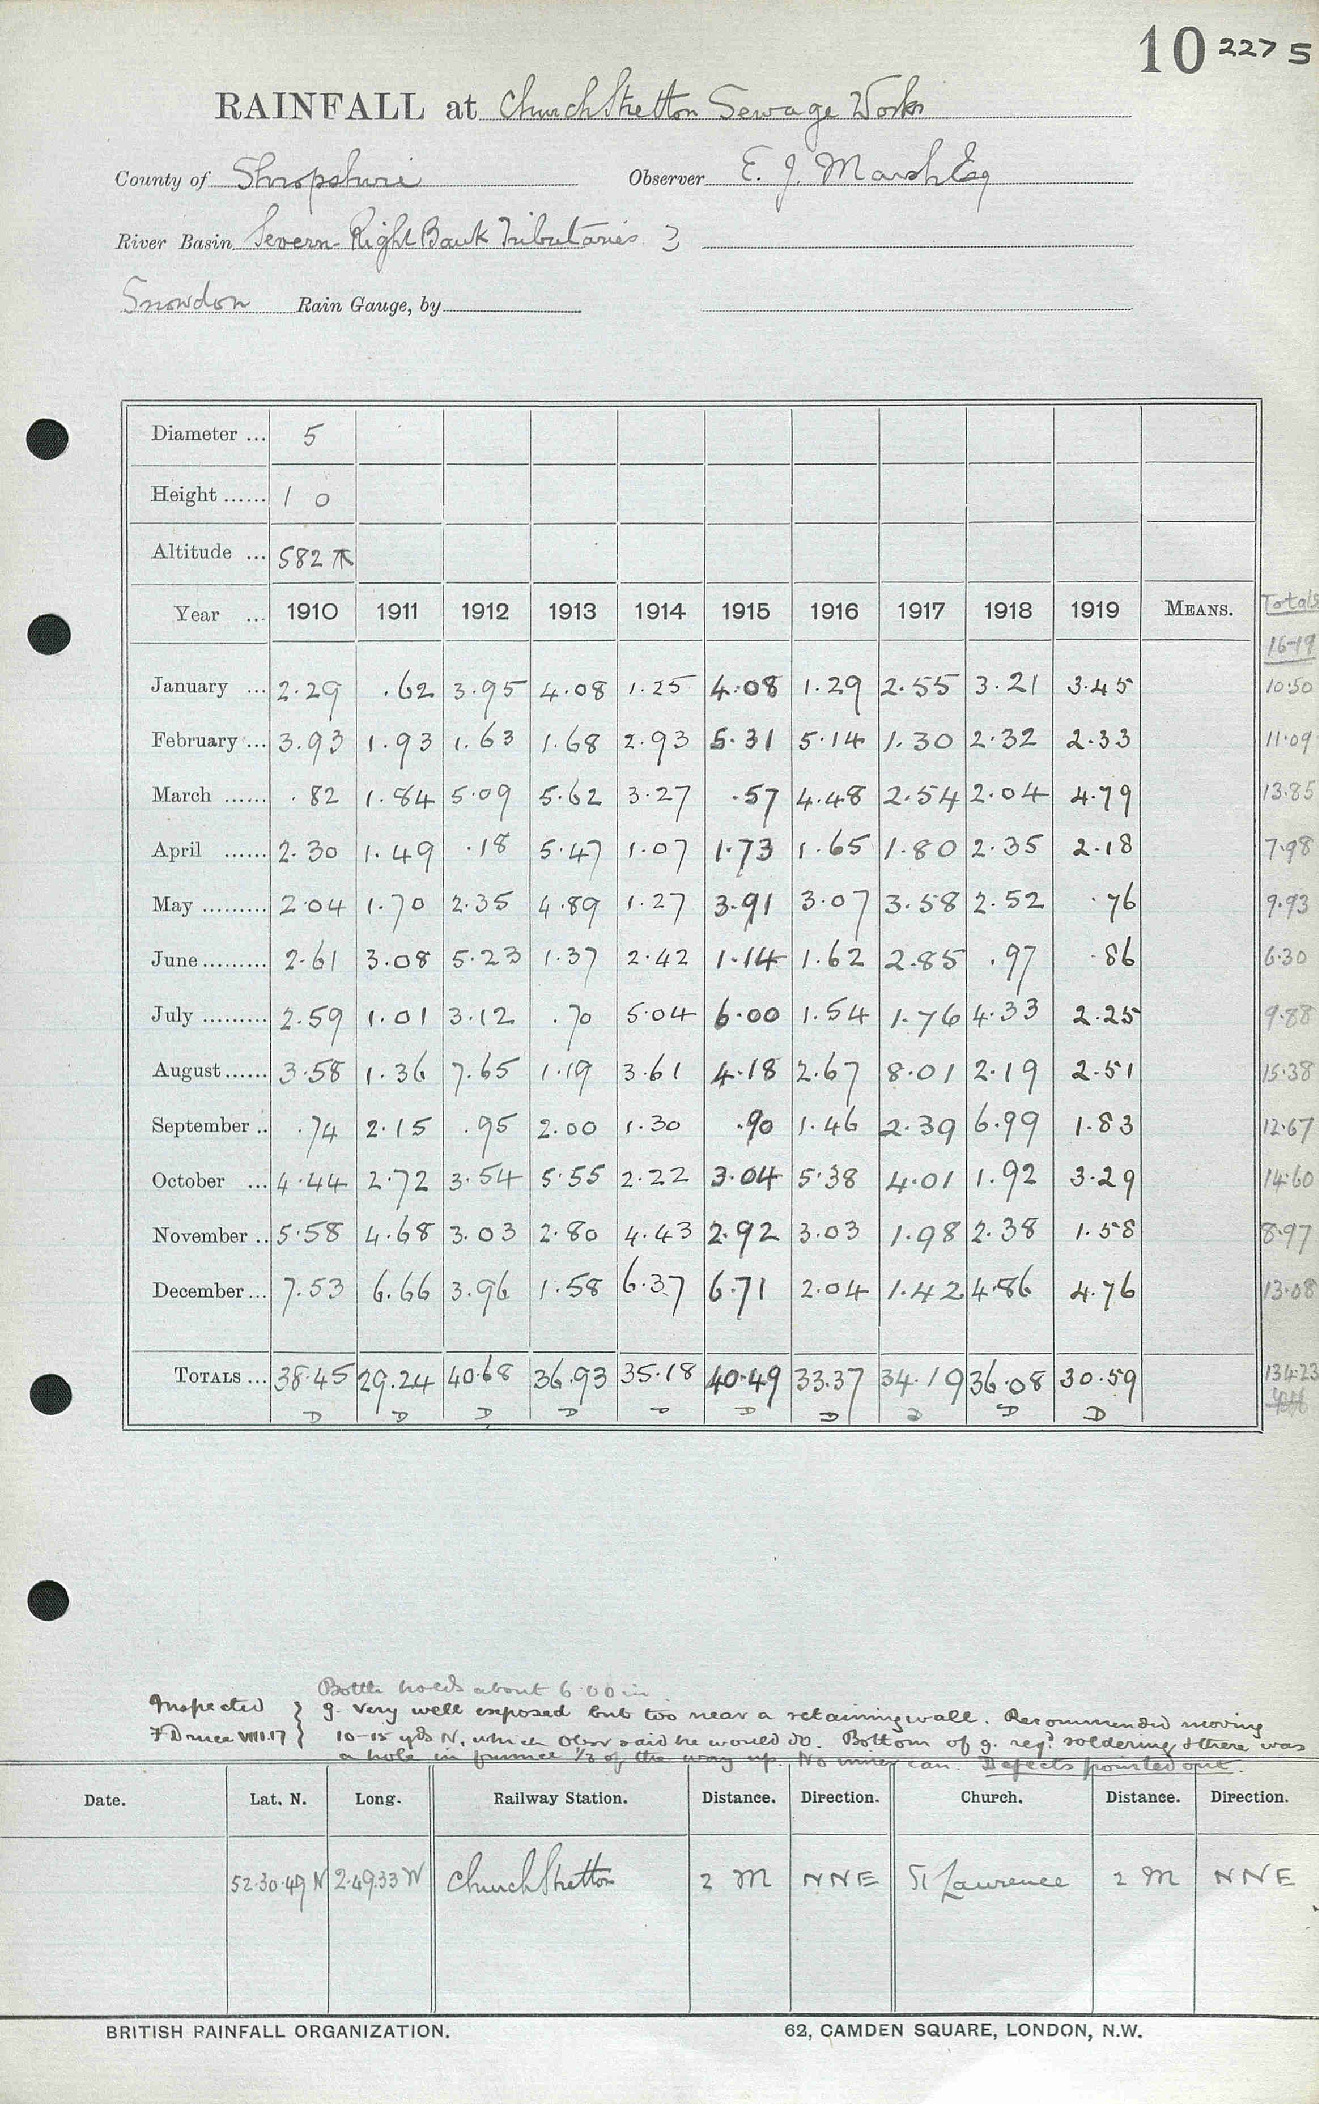 10 2275
RAINFALL at Church Stretton Sewage Works
County of Shropshire Observer E. J. Marsh Esq
River Basin Severn-Right Bank Tributaries 3
Snowdon Rain Gauge, by
Diameter ... 5
Height ...... 1 0
Altitude ... 582 ft
Year ... 1910 1911 1912 1913 1914 1915 1916 1917 1918 1919 MEANS. Totals
16-19
January ... 2.29 .62 3.95 4.08 1.25 4.08 1.29 2.55 3.21 3.45 10.50
February ... 3.93 1.93 1.63 1.68 2.93 5.31 5.14 1.30 2.32 2.33 11.09
March ...... .82 1.84 5.09 5.62 3.27 .57 4.48 2.54 2.04 4.79 13.85
April ...... 2.30 1.49 .18 5.47 1.07 1.73 1.65 1.80 2.35 2.18 7.98
May ......... 2.04 1.70 2.35 4.89 1.27 3.91 3.07 3.58 2.52 .76 9.93
June ......... 2.61 3.08 5.23 1.37 2.42 1.14 1.62 2.85 .97 .86 6.30
July ......... 2.59 1.01 3.12 .70 5.04 6.00 1.54 1.76 4.33 2.25 9.88
August ...... 3.58 1.36 7.65 1.19 3.61 4.18 2.67 8.01 2.19 2.51 15.38
September .. .74 2.15 .95 2.00 1.30 .90 1.46 2.39 6.99 1.83 12.67
October ... 4.44 2.72 3.54 5.55 2.22 3.04 5.38 4.01 1.92 3.29 14.60
November .. 5.58 4.68 3.03 2.80 4.43 2.92 3.03 1.98 2.38 1.58 8.97
December ... 7.53 6.66 3.96 1.58 6.37 6.71 2.04 1.42 4.86 4.76 13.08
TOTALS ... 38.45 29.24 40.68 36.93 35.18 40.49 33.37 34.19 36.08 30.59 134.23
D D D D D D D D D D
Bottle holds about 6.00 in.
Inspected } g. very well exposed but too near a retaining wall. Recommended moving
F Druce VIII.17 } 10-15 yds N, which Obsr said he would do. Bottom of g. reqd soldering & there was
a hole in funnel 1/3 of the way up. No inner can. Defects pointed out.
Date. Lat. N. Long. Railway Station. Distance. Direction. Church. Distance. Direction.
52.30.49 N 2.49.33 W Church Stretton 2 M NNE St Lawrence 2 M NNE
BRITISH RAINFALL ORGANIZATION. 62, CAMDEN SQUARE, LONDON, N.W.